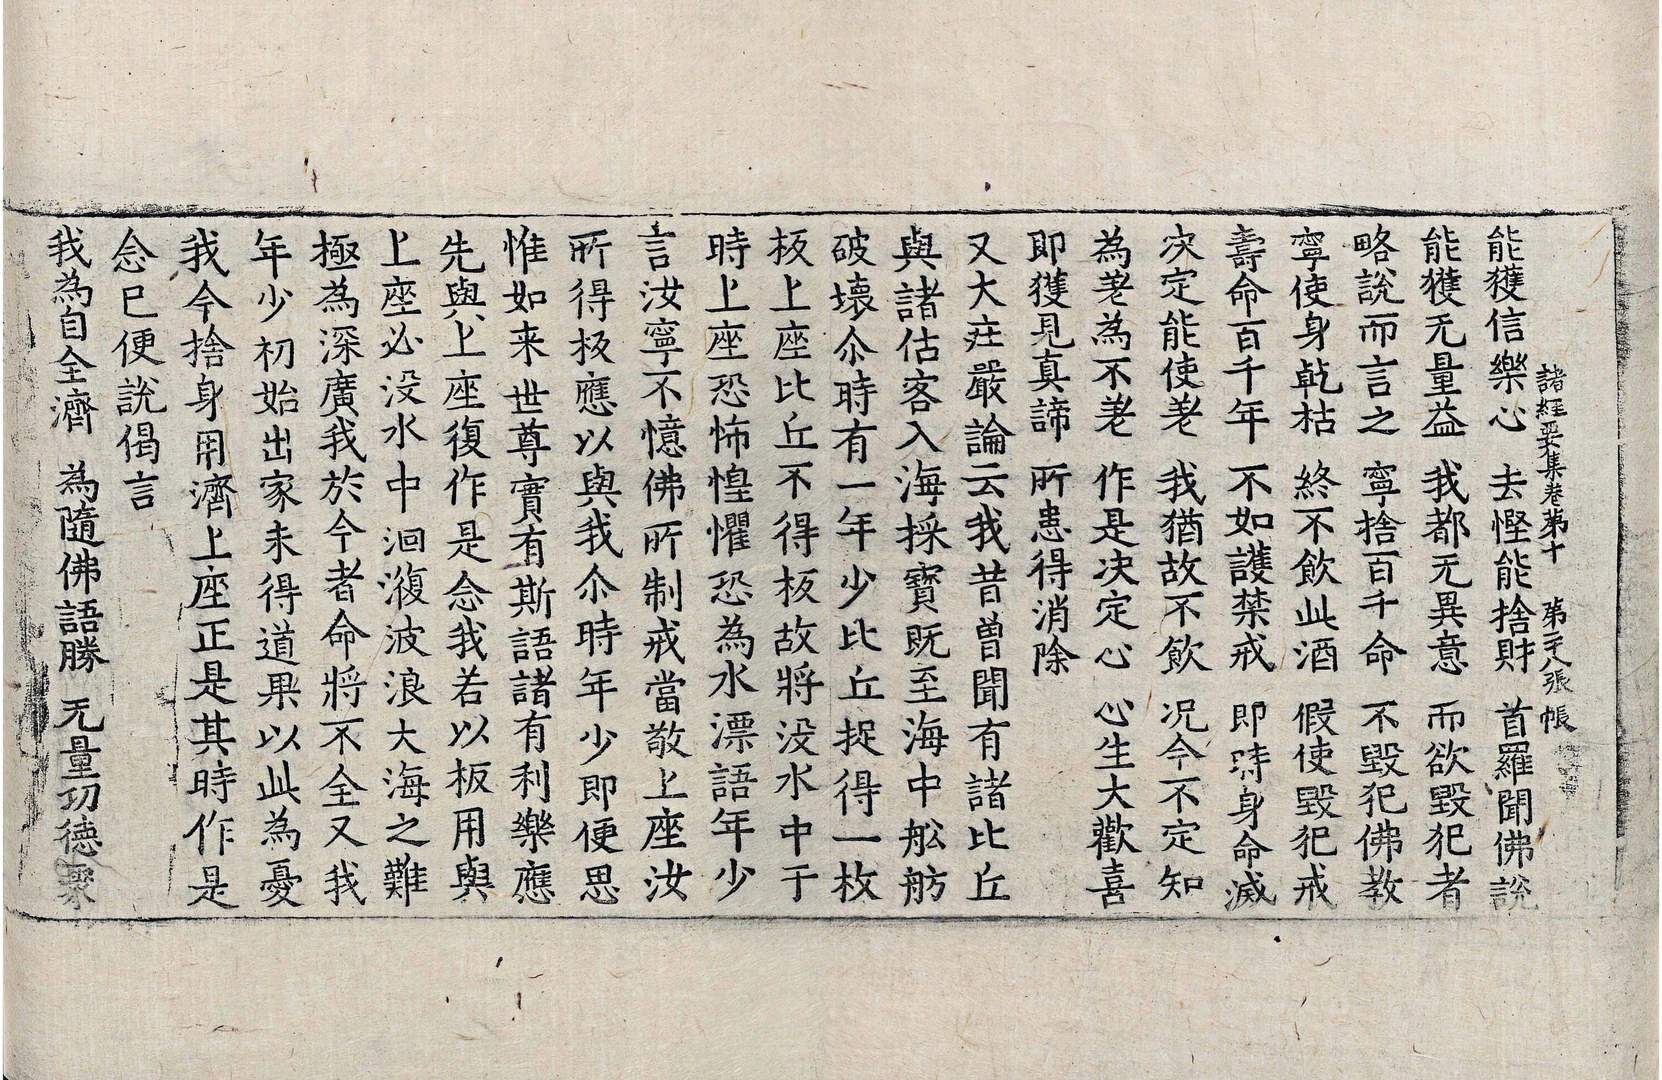 諸經要集卷第十 第二十八張 帳
能獲信樂心 去慳能捨財 首羅聞佛說
能獲无量益 我都无異意 而欲毀犯者
略說而言之 寧捨百千命 不毀犯佛教
寧使身乾枯 終不飲此酒 假使毀犯戒
壽命百千年 不如護禁戒 即時身命滅
决定能使差 我猶故不飲 况今不定知
為差為不差 作是决定心 心生大歡喜
即獲見真諦 所患得消除
又大莊嚴論云我昔曾聞有諸比丘
與諸估客入海採寶既至海中舩舫
破壞尒時有一年少比丘捉得一枚
板上座比丘不得板故將没水中于
時上座恐怖惶懼恐為水漂語年少
言汝寧不憶佛所制戒當敬上座汝
所得板應以與我尒時年少即便思
惟如来世尊實有斯語諸有利樂應
先與上座復作是念我若以板用與
上座必没水中洄澓波浪大海之難
極為深廣我於今者命將不全又我
年少初始出家未得道果以此為憂
我今捨身用濟上座正是其時作是
念已便說偈言
我為自全濟 為隨佛語勝 无量功德聚